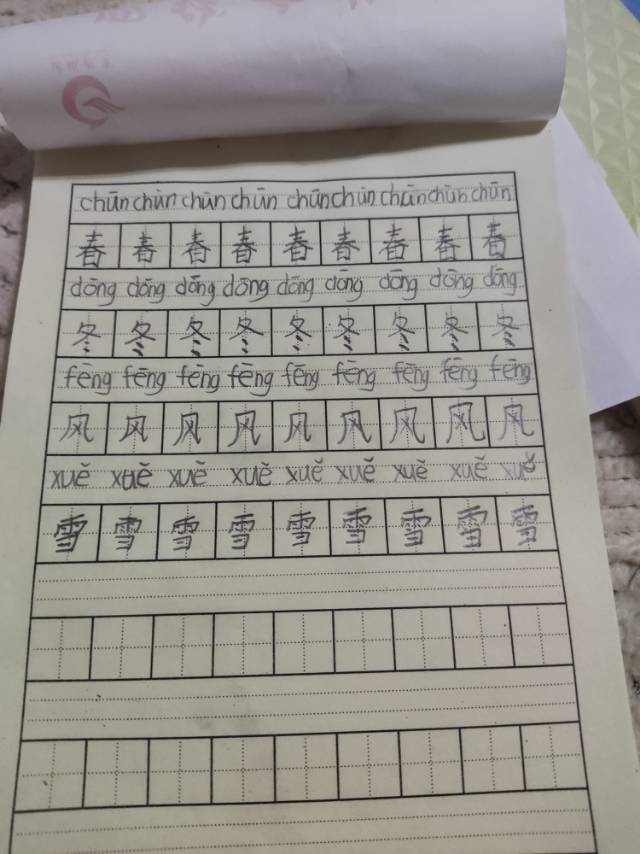 chūn chūn chūn chūn chūn chūn chūn chūn chūn
春 春 春 春 春 春 春 春 春
dōng dōng dōng dōng dōng dōng dōng dōng dōng
冬 冬 冬 冬 冬 冬 冬 冬 冬
fēng fēng fēng fēng fēng fēng fēng fēng fēng
风 风 风 风 风 风 风 风 风
xuě xuě xuě xuě xuě xuě xuě xuě xuě
雪 雪 雪 雪 雪 雪 雪 雪 雪